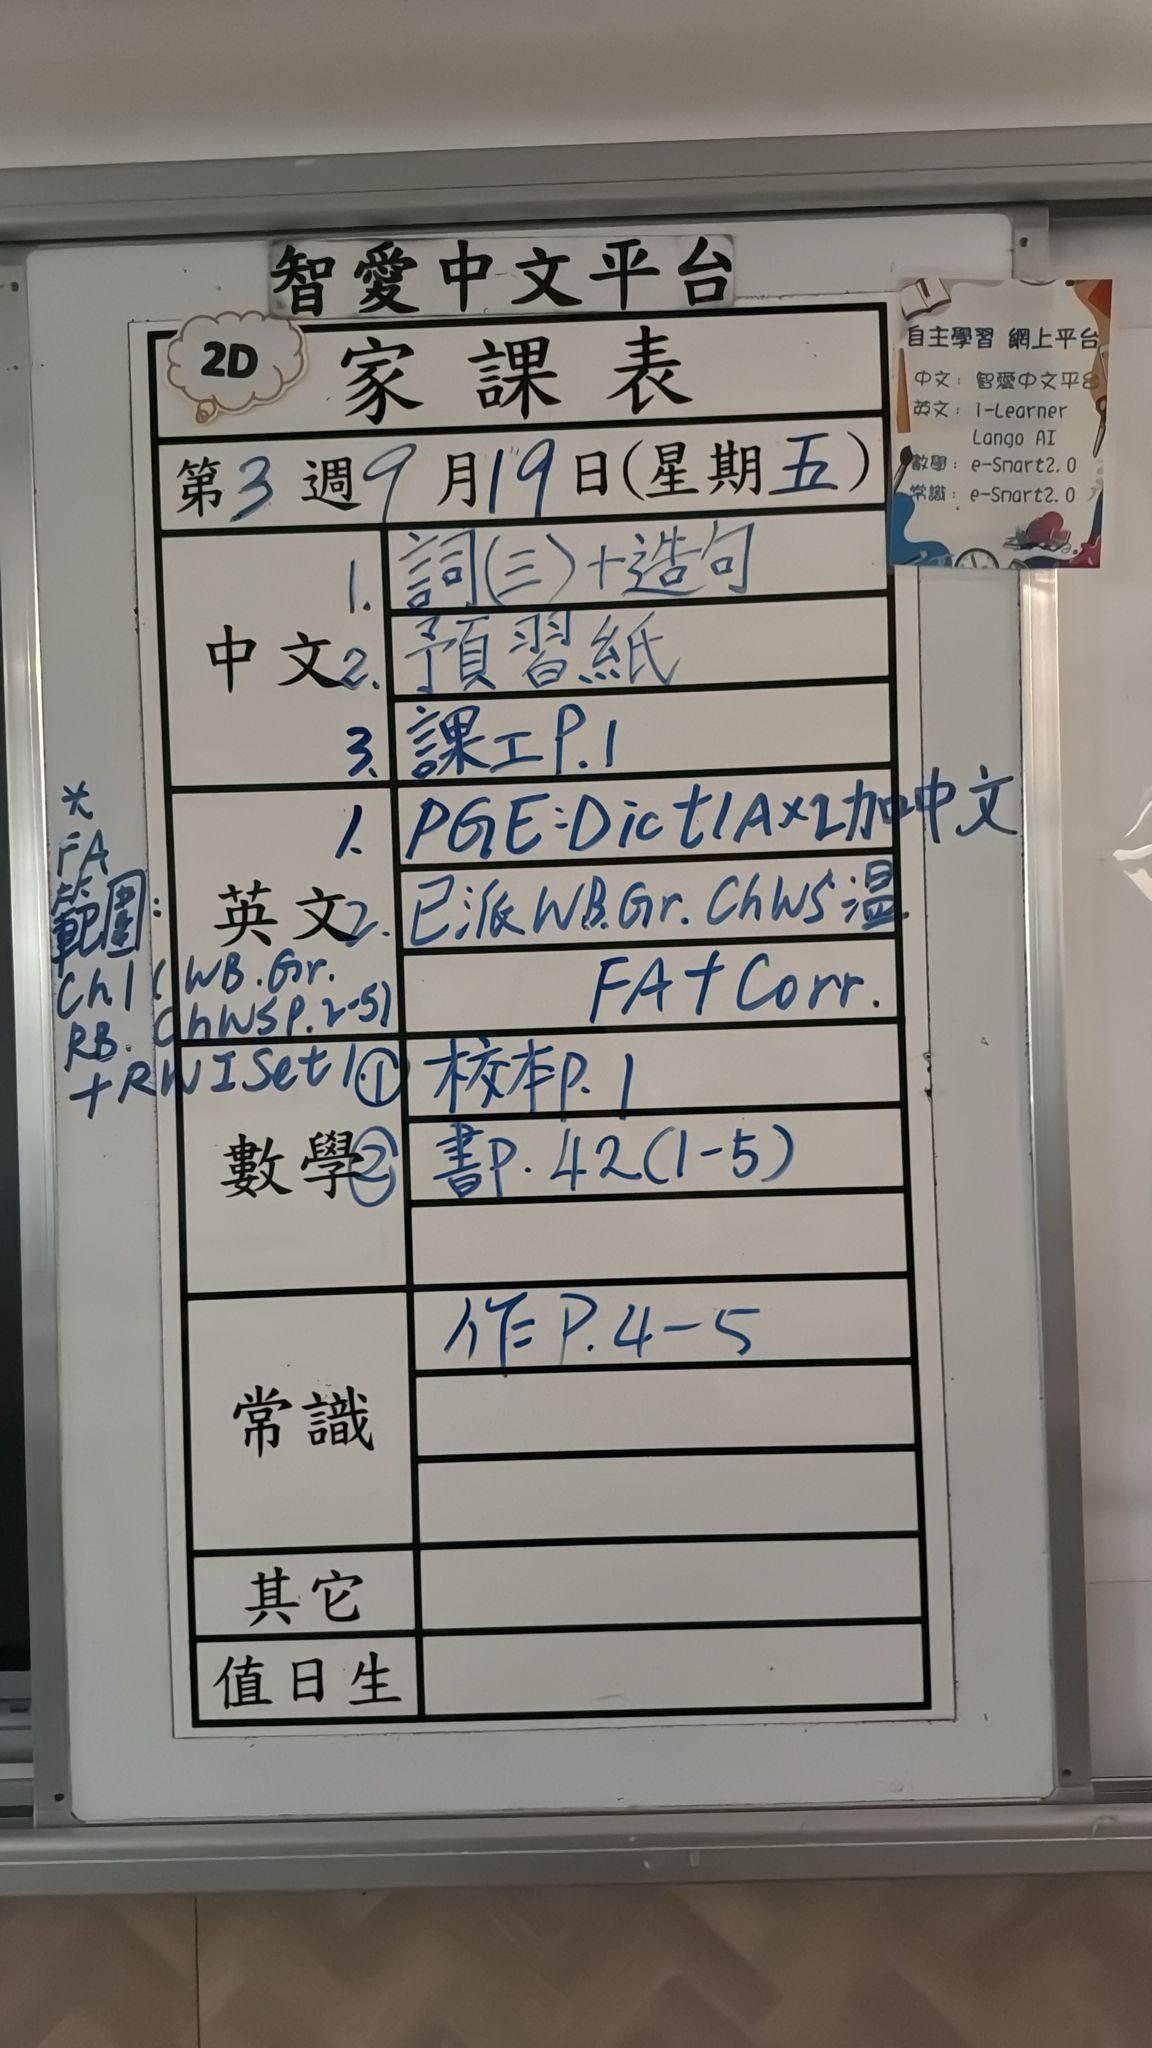 智愛中文平台
2D
家課表
第3週9月19日(星期五)
中文
1. 詞(三)+造句
2. 預習紙
3. 課工P.1
英文
1. PGE:Dict1A×2加中文
2. 已派WB.Gr.ChWS溫
FA+Corr.
*
FA
範圍:
Ch.1(WB.Gr.
RB. ChWSP.2-5)
+RWISet1
數學
① 校本P.1
② 書P.42(1-5)
常識
作P.4-5
其它
值日生
自主學習 網上平台
中文：智愛中文平台
英文：i-Learner
Lango AI
數學：e-Smart2.0
常識：e-Smart2.0